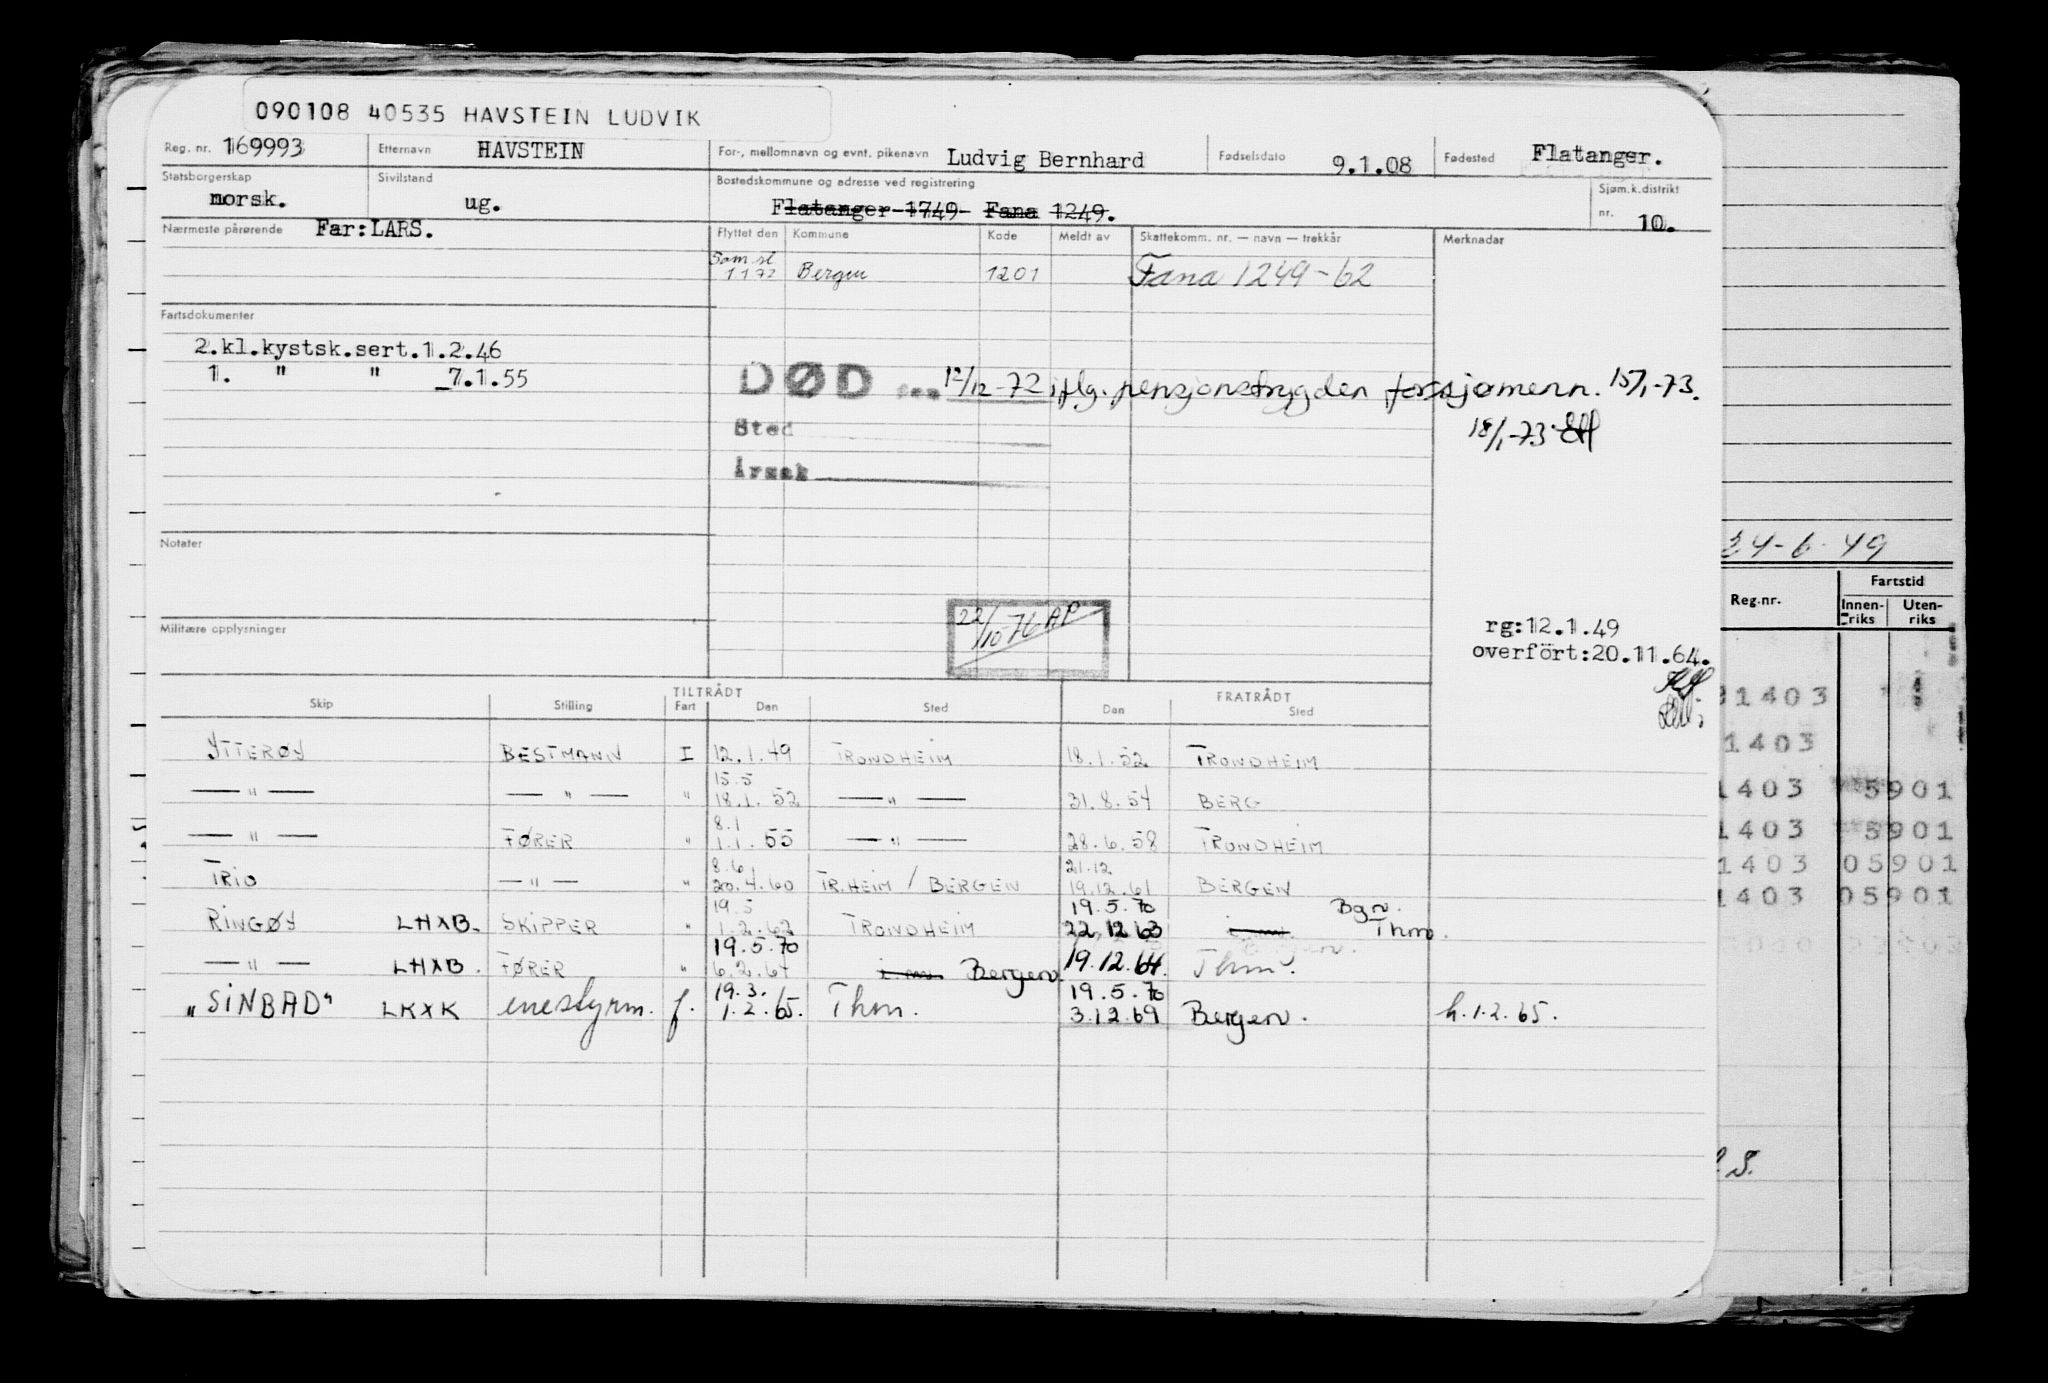 090108 40535 HAVSTEIN LUDVIK
Reg. nr. 169993 Etternavn HAVSTEIN For-, mellomnavn og evnt. pikenavn Ludvig Bernhard Fødselsdato 9.1.08 Fødested Flatanger.
Statsborgerskap Sivilstand Bostedskommune og adresse ved registrering Sjøm.k.distrikt
norsk. ug. Flatanger 1749 Fana 1249. nr. 10.
Nærmeste pårørende Far:LARS. Flyttet den Kommune Kode Meldt av Skattekomm. nr. — navn — trekkår Merknader
Sam.sl
1 1 72 Bergen 1201 Fana 1249-62
Fartsdokumenter
2.kl.kystsk.sert.1.2.46
1. " " 7.1.55
DØD den 12/12-72 iflg. pensjonstrygden for sjømenn. 15/1-73.
Sted 18/1-73
Årsak
24-6-49
Notater
Fartstid
Reg.nr. Innen-riks Uten-riks
22/10-76 AP
Militære opplysninger
rg:12.1.49
overfört:20.11.64.
TILTRÅDT FRATRÅDT
Skip Stilling Fart Den Sted Den Sted
YTTERØY BESTMANN I 12.1.49 TRONDHEIM 18.1.52 TRONDHEIM
15.5
— " — — " — " 18.1.52 — " — 31.8.54 BERG
8.1
— " — FØRER " 1.1.55 — " — 28.6.58 TRONDHEIM
8.6 21.12
TRIO — " — " 20.4.60 TR.HEIM / BERGEN 19.12.61 BERGEN
19.5 19.5.70 Bgn.
RINGØY LHXB. SKIPPER " 1.2.62 TRONDHEIM 22.12.63 Thm.
19.5.70
— " — LHXB. FØRER " 6.2.64 Bergen 19.12.64. Thm.
19.3. 19.5.70
"SINBAD" LKXK enestyrm. f. 1.2.65. Thm. 3.12.69 Bergen. h.1.2.65.
1403
1403
1403 5901
1403 5901
1403 05901
1403 05901
S.